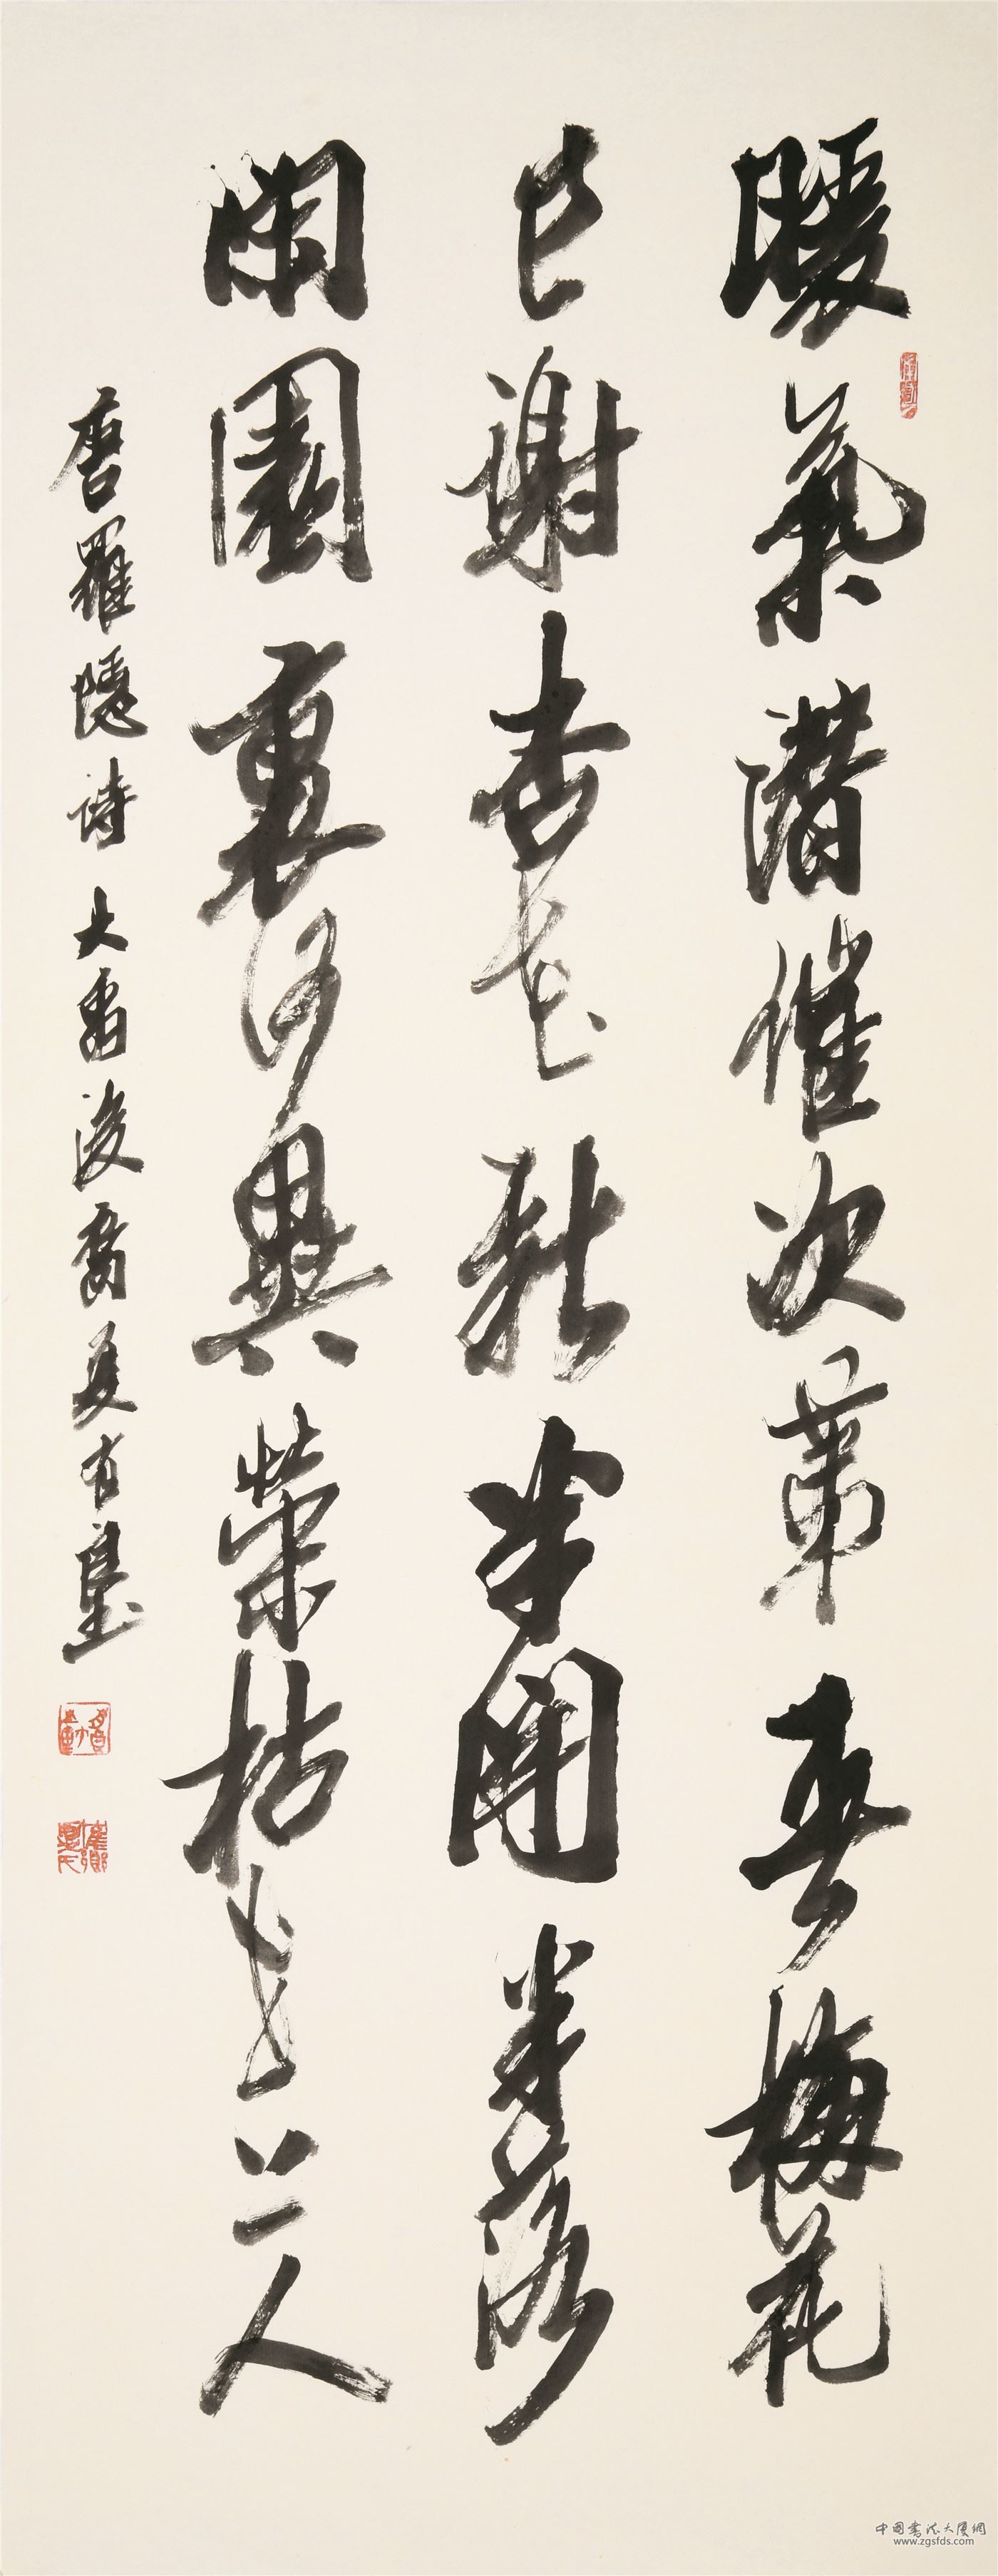 暖氣潛催次第春梅花
已謝杏花新半開半落
閑園裏何異榮枯世上人
唐羅隱詩大禹後裔夏有良
中国書法大厦網
www.zgsfds.com